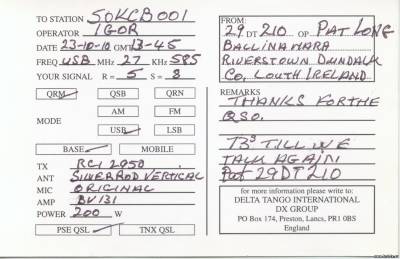 TO STATION 50KCB001
OPERATOR IGOR
DATE 23-10-10 GMT 13-45
FREQ USB MHz 27 KHz 585
YOUR SIGNAL R = 5 S = 8
QRM QSB QRN
AM FM
MODE
USB LSB
BASE MOBILE
TX RCI 2950
ANT SILVERROD VERTICAL
MIC ORIGINAL
AMP BV131
POWER 200 W
PSE QSL TNX QSL
FROM:
29 DT 210 OP PAT LONG
BALLINAMARA
RIVERSTOWN DUNDALK
CO, LOUTH IRELAND
REMARKS
THANKS FOR THE
QSO.
73s TILL WE
TALK AGAIN
Pat 29DT210
for more information please write to:
DELTA TANGO INTERNATIONAL
DX GROUP
PO Box 174, Preston, Lancs, PR1 0BS
England